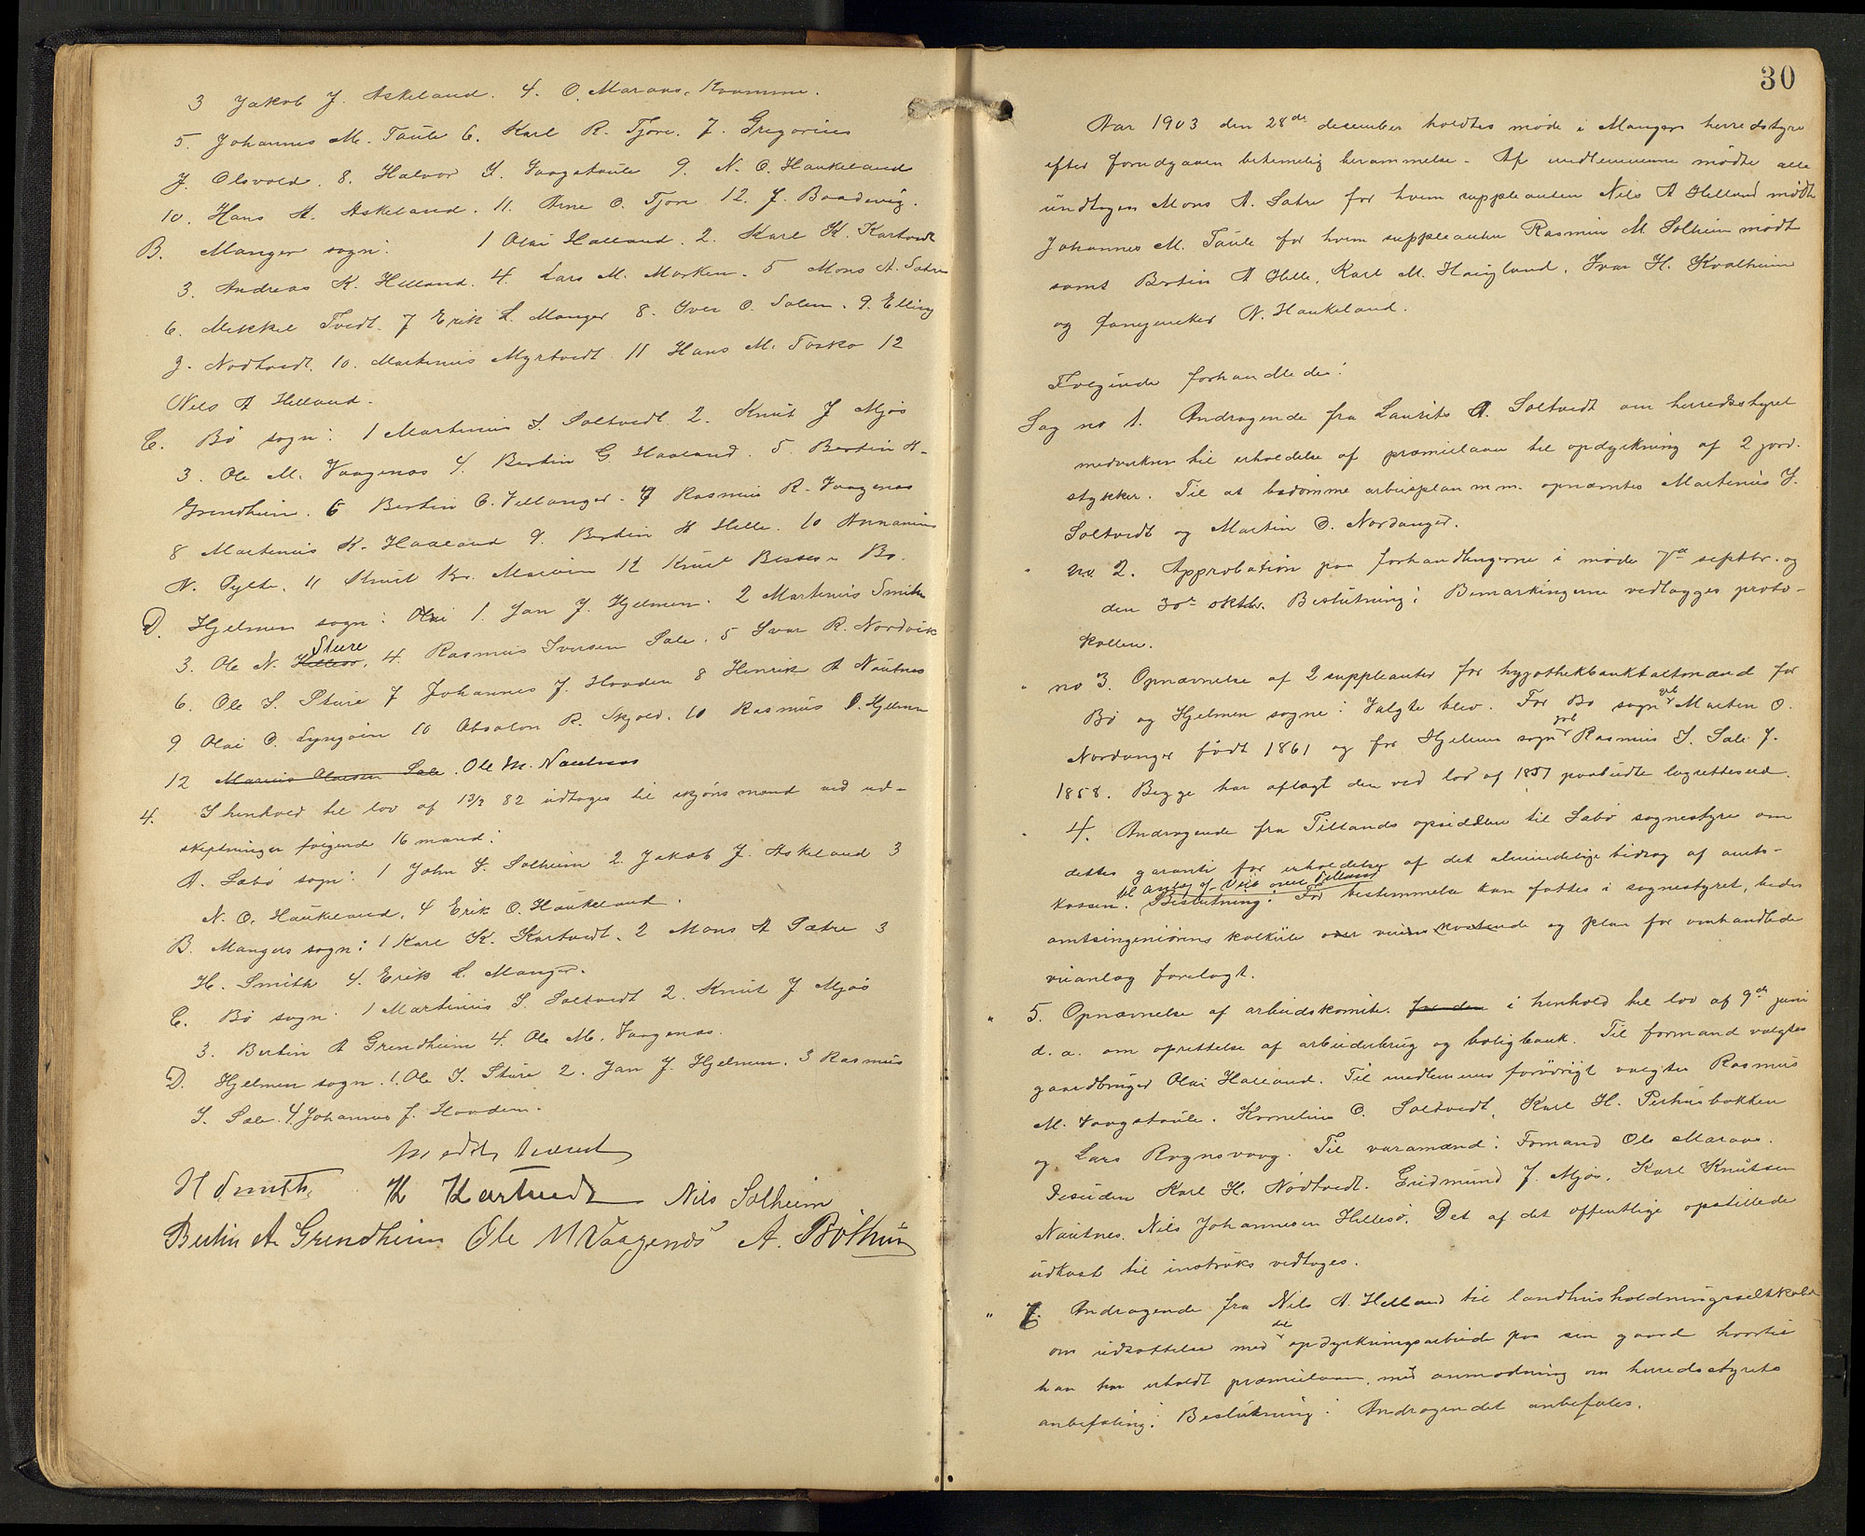 3 Jakob J. Askeland. 4. O. Maraas,
5. Johannes M. Taule 6. Karl R. Fjore. 7. Gregorius
J. Olsvold. 8. Halvor I. Vaagetaule 9. N. O. Haukeland
10. Hans A. Askeland. 11. Arne O. Fjore 12. J. Baadevig.
B. Manger sogn: 1 Olai Halland. 2. Karl K. Kartvedt
3. Andreas K. Helland. 4. Lars M. Marken. 5 Mons A. Sætre
6. Mikkel Tvedt. 7 Erik L. Manger 8. Iver O. Solem. 9. Elling
J. Nodtvedt. 10. Martinius Myrtvedt 11 Hans M. Toska 12
Nils A Helland.
C. Bø sogn: 1 Martinius S. Soltvedt 2. Knut J Mjøs
3. Ole M. Vaagenæs 4. Bertin G. Haaland. 5. Bertin A.
Grendheim. 6 Bertin O. Vellanger. 7 Rasmus R. Vaagenæs
8 Martinius K. Haaland 9. Bertin A Helle. 10 Annanias
N. Pylte. 11 Knut Kr. 12 Knut Bessesen Bø.
D. Hjelmen sogn: Olai 1. Jan J. Hjelmen. 2 Martinius Smith
3. Ole N. Hellesø Sture, 4. Rasmus Iversen Sæle. 5 Ivar R. Nordvik
6. Ole I. Sture 7 Johannes J. Hovden 8 Henrik A Nautnes
9 Olai O. Lyngøien 10 Absalon R. Skjold. 10 Rasmus O. Hjelmen
12 Marius Olaesen Sæle. Ole M. Nautnæs
4. I henhold til lov af 13/3 82 udtoges til skjønsmænd ved ud-
skiftninger følgende 16 mænd:
A. Sæbø sogn: 1 John S. Solheim 2. Jakob J. Askeland 3
N. O. Haukeland, 4 Erik O. Haukeland.
B. Mangers sogn: 1 Karl K. Kartvedt. 2 Mons A Sætre 3
H. Smith 4. Erik L. Manger.
C. Bø sogn: 1 Martinius S. Soltvedt 2. Knut J Mjøs
3. Bertin A Grendheim 4. Ole M. Vaagenæs.
D. Hjelmen sogn. 1. Ole I. Sture 2. Jan J. Hjelmen. 3 Rasmus
I. Sæle. 4 Johannes J. Hovden.
Mødet hævet
H Smith. K Kartvedt Nils Solheim
Bertin A. Grendheim Ole M Vaagenæs A. Bøthun
30
Aar 1903 den 28de desember holdtes møde i Manger herredsstyre
efter forudgaaen betimelig berammelse. Af medlemmerne mødte alle
undtagen Mons A. Sætre for hvem suppleanten Nils A Helland mødte
Johannes M. Taule for hvem suppleanten Rasmus M. Solheim mødte
samt Bertin A Helle, Karl M. Haugland, Ivar H. Kvalheim
og N. Haukeland.
Følgende forhandledes:
Sag no 1. Andragende fra Laurits A. Soltvedt om herredsstyrets
medvirken til erholdelse af præmielaan til opdyrkning af 2 jord-
stykker. Til at bedømme arbeisplan m.m. opnævntes Martinius S.
Soltvedt og Martin O. Nordanger.
" no 2. Approbation paa forhandlingerne i møde 7de septbr. og
den 30te oktbr. Beslutning: Bemærkingerne vedlægges proto-
kollen.
" no 3. Opnævnelse af 2 suppleanter for hypothekbanktakstmænd for
Bø og Hjelmen sogne: Valgte blev. For Bø sogn Martin O.
Nordanger født 1861 og for Hjelmen sogn Rasmus I. Sæle f.
1858. Begge har aflagt den ved lov af 1857 paabudte lagrettesed.
" 4. Andragende fra Tillands opsiddere til Sæbø sognestyre om
dettes garanti for erholdelse af det almindelige bidrag af amts-
kassen til anlæg af vei over Tilland. Beslutning: Før bestemmelse kan fattes i sognestyret, bedes
amtsingeniørens kalkule over veiens kostende og plan for omhandlede
veianlæg forelagt.
" 5. Opnævnelse af arbeidskomite. for den i henhold til lov af 9de juni
d. a. om oprettelse af arbeiderbrug og boligbank. Til formand valgtes
gaardbruger Olai Halland. Til medlemmer forøvrigt valgtes Rasmus
M. Vaagetaule. Kornelius O. Soltvedt, Karl H. Perhusbakken
og Lars Rognsvaag. Til varamænd: Formand Ole Maraas.
Desuden Karl H. Nodtvedt. Gudmund J. Mjøs, Karl Knutsen
Nautnes. Nils Johannesen Hillesø. Det af det offentlige opstillede
udkast til instruks vedtoges.
" 6. Andragende fra Nils A. Helland til landhusholdningsselskabet
om udsættelse med del opdyrkningsarbeide paa sin gaard hvortil
han har erholdt præmielaan, med anmodning om herredsstyrets
anbefaling: Beslutning: Andragendet anbefales.